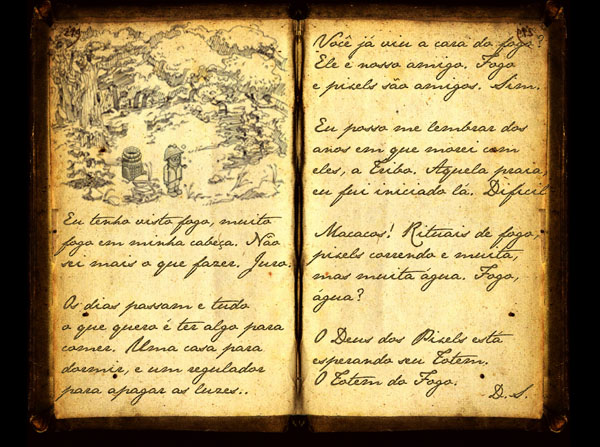 Eu tenho visto fogo, muito
fogo em minha cabeça. Não
sei mais o que fazer. Juro.
Os dias passam e tudo
o que quero é ter algo para
comer. Uma casa para
dormir, e um regulador
para apagar as luzes..
Você já viu a cara do fogo?
Ele é nosso amigo. Fogo
e pixels são amigos. Sim.
Eu posso me lembrar dos
anos em que morei com
eles, a Tribo. Aquela praia,
eu fui iniciado lá. Difícil
Macacos! Rituais de fogo,
pixels correndo e muita,
mas muita água. Fogo,
água?
O Deus dos Pixels está
esperando seu Totem.
O Totem do Fogo.
D. S.